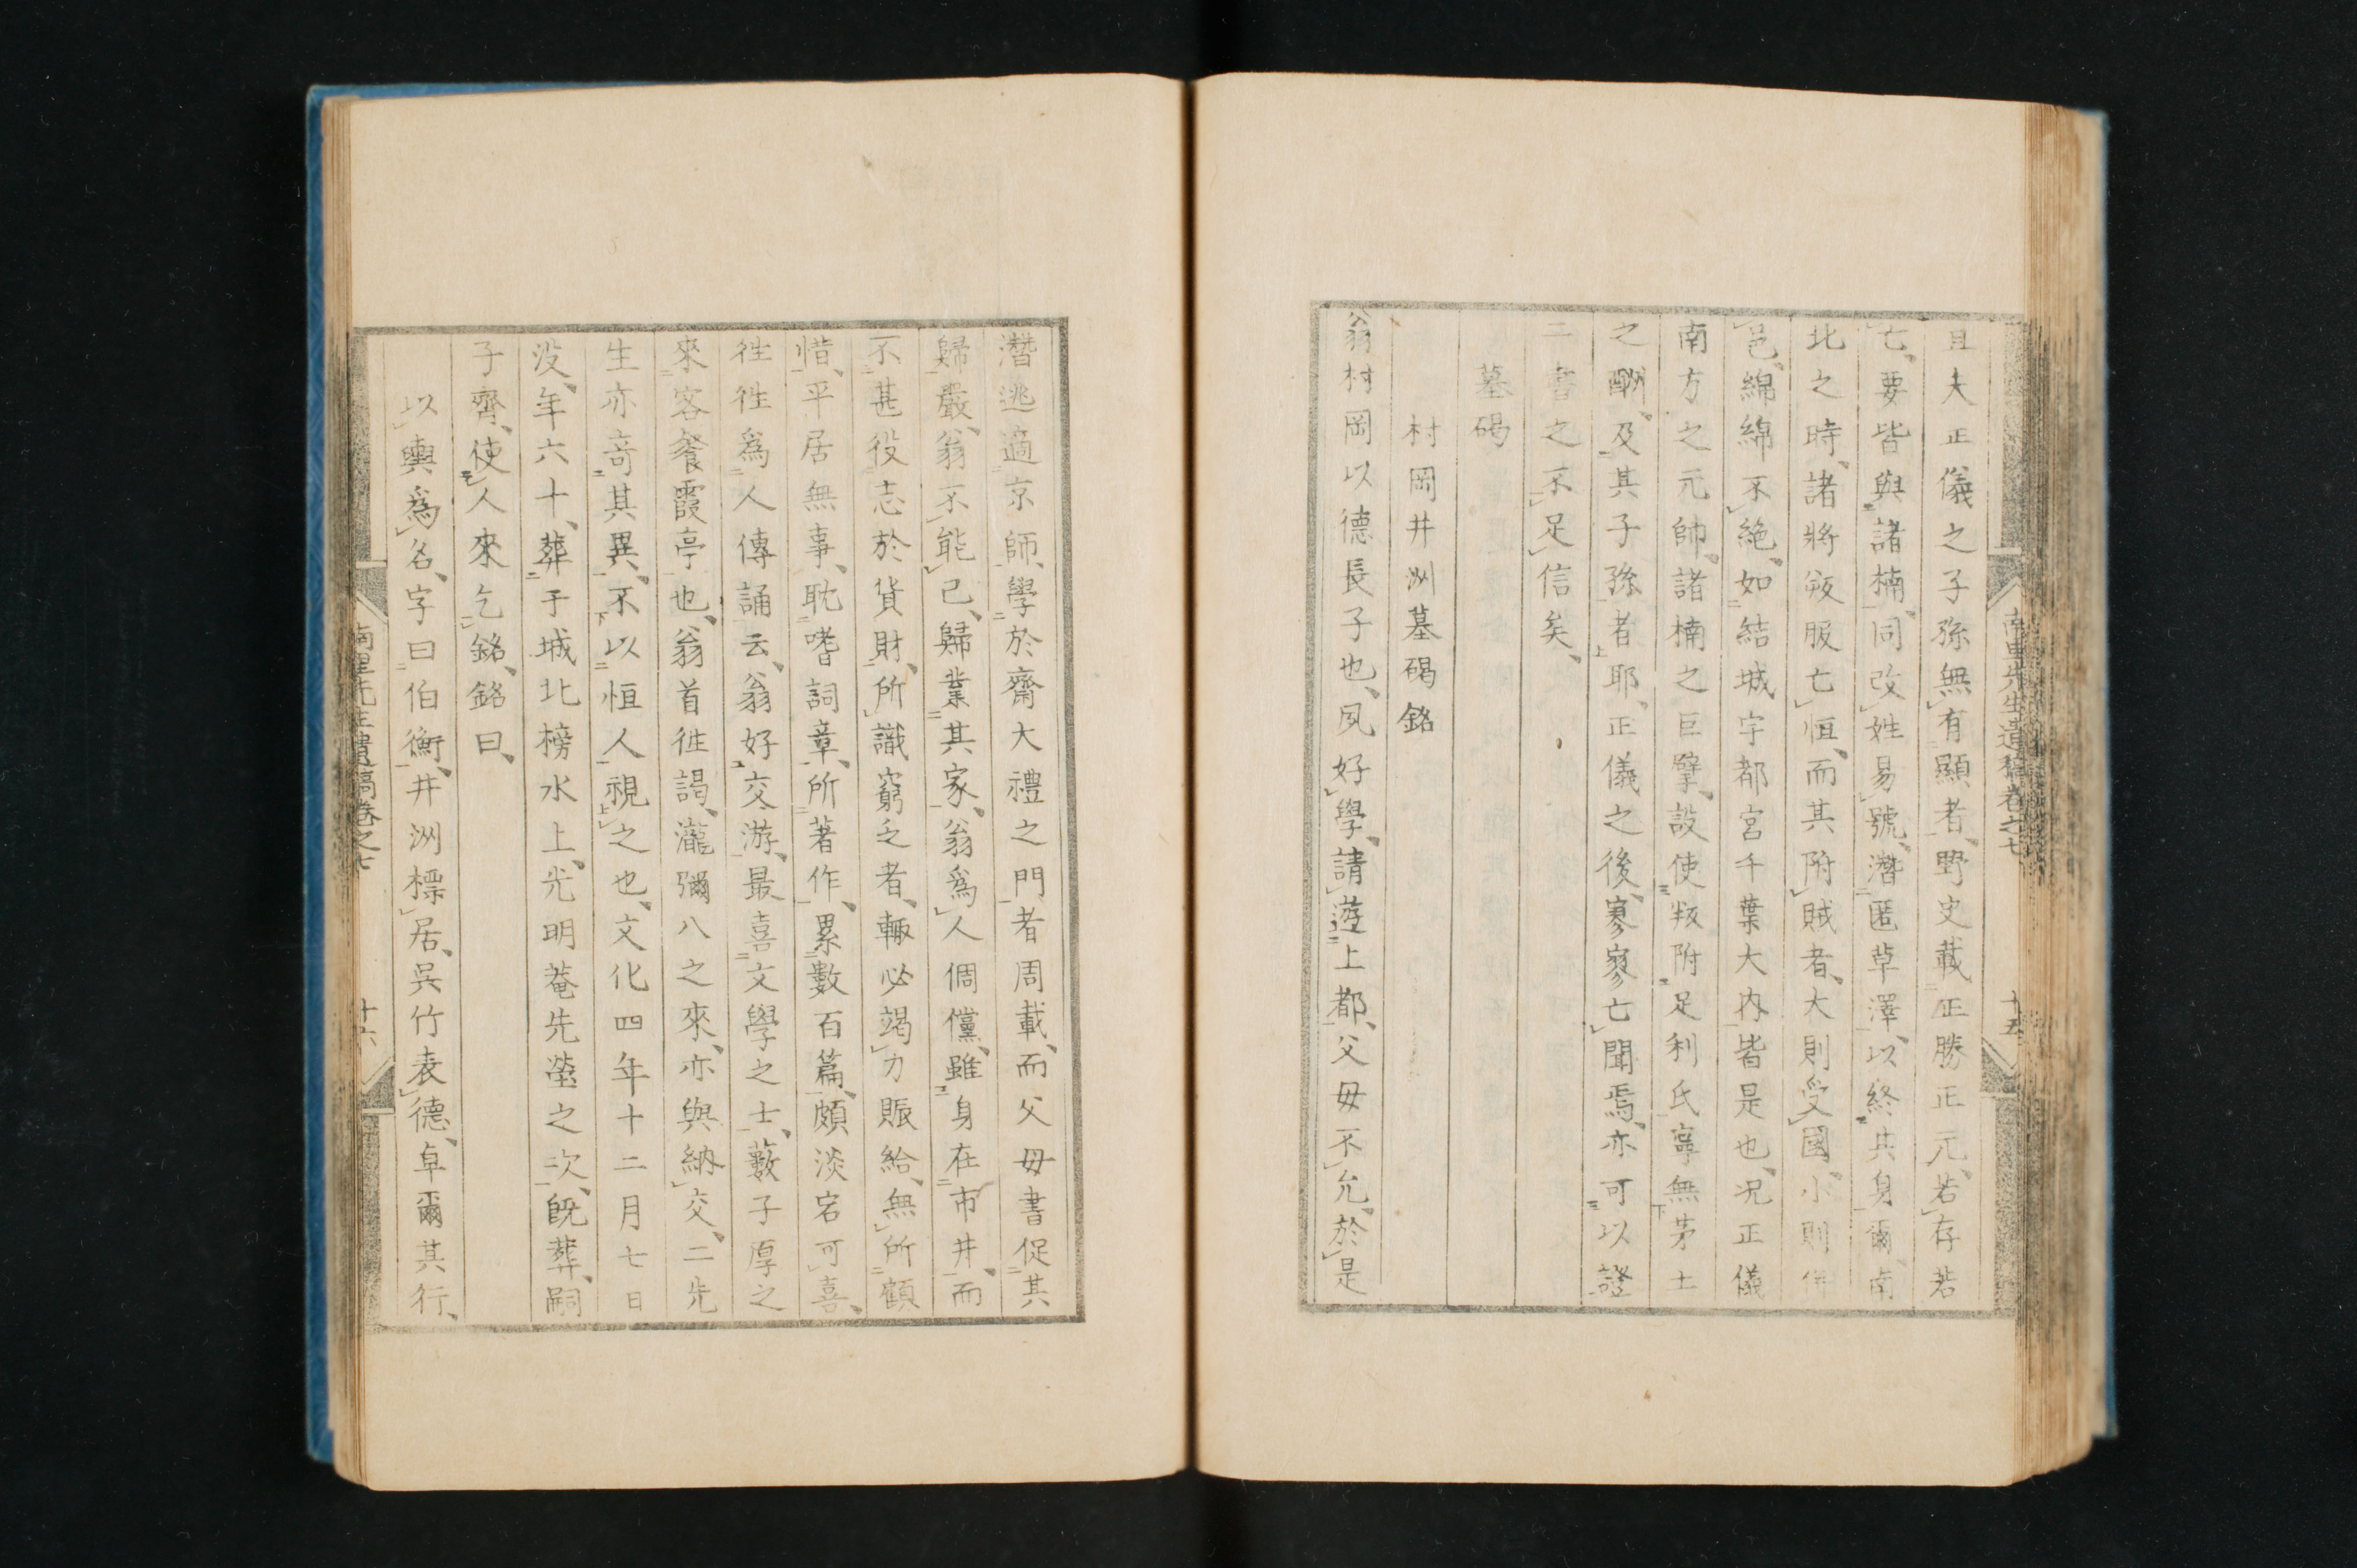 且夫正儀之子孫無有顯者、野史載正勝正元、若存若
亡、要皆與諸楠、同改姓易號、潛匿草澤、以終其身爾、南
北之時、諸將叛服亡恒、而其附賊者、大則受國、小則
邑、綿綿不絶、如結城宇都宮千葉大内、皆是也、况正儀
南方之元帥、諸楠之巨擘、設使叛附足利氏、寧無茅土
之酬、及其子孫者耶、正儀之後、寥寥亡聞焉、亦可以證
二書之不足信矣、
墓碣
村岡井洲墓碣銘
翁村岡以德長子也、夙好學、請遊上都、父母不允、於是
南里先生遺稿卷之七
十五
潛逃適京師、學於齋大禮之門者周載、而父母書促其
歸嚴、翁不能已、歸業其家、翁爲人倜儻、雖身在市井、而
不甚役志於貨財、所識窮乏者、輙必竭力賑給、無所顧
惜、平居無事、耽嗜詞章、所著作、累數百篇、頗淡宕可喜、
徃徃爲人傳誦云、翁好交游、最喜文學之士、藪子厚之
來客餐霞亭也、翁首徃謁、瀧彌八之來、亦與納交、二先
生亦竒其異、不以恒人視之也、文化四年十二月七日
没、年六十、葬于城北榜水上、光明菴先塋之次、既葬、嗣
子齊、使人來乞銘、銘曰、
以輿爲名、字曰伯衡、井洲標居、呉竹表德、卓爾其行、
南里先生遺稿卷之七
十六